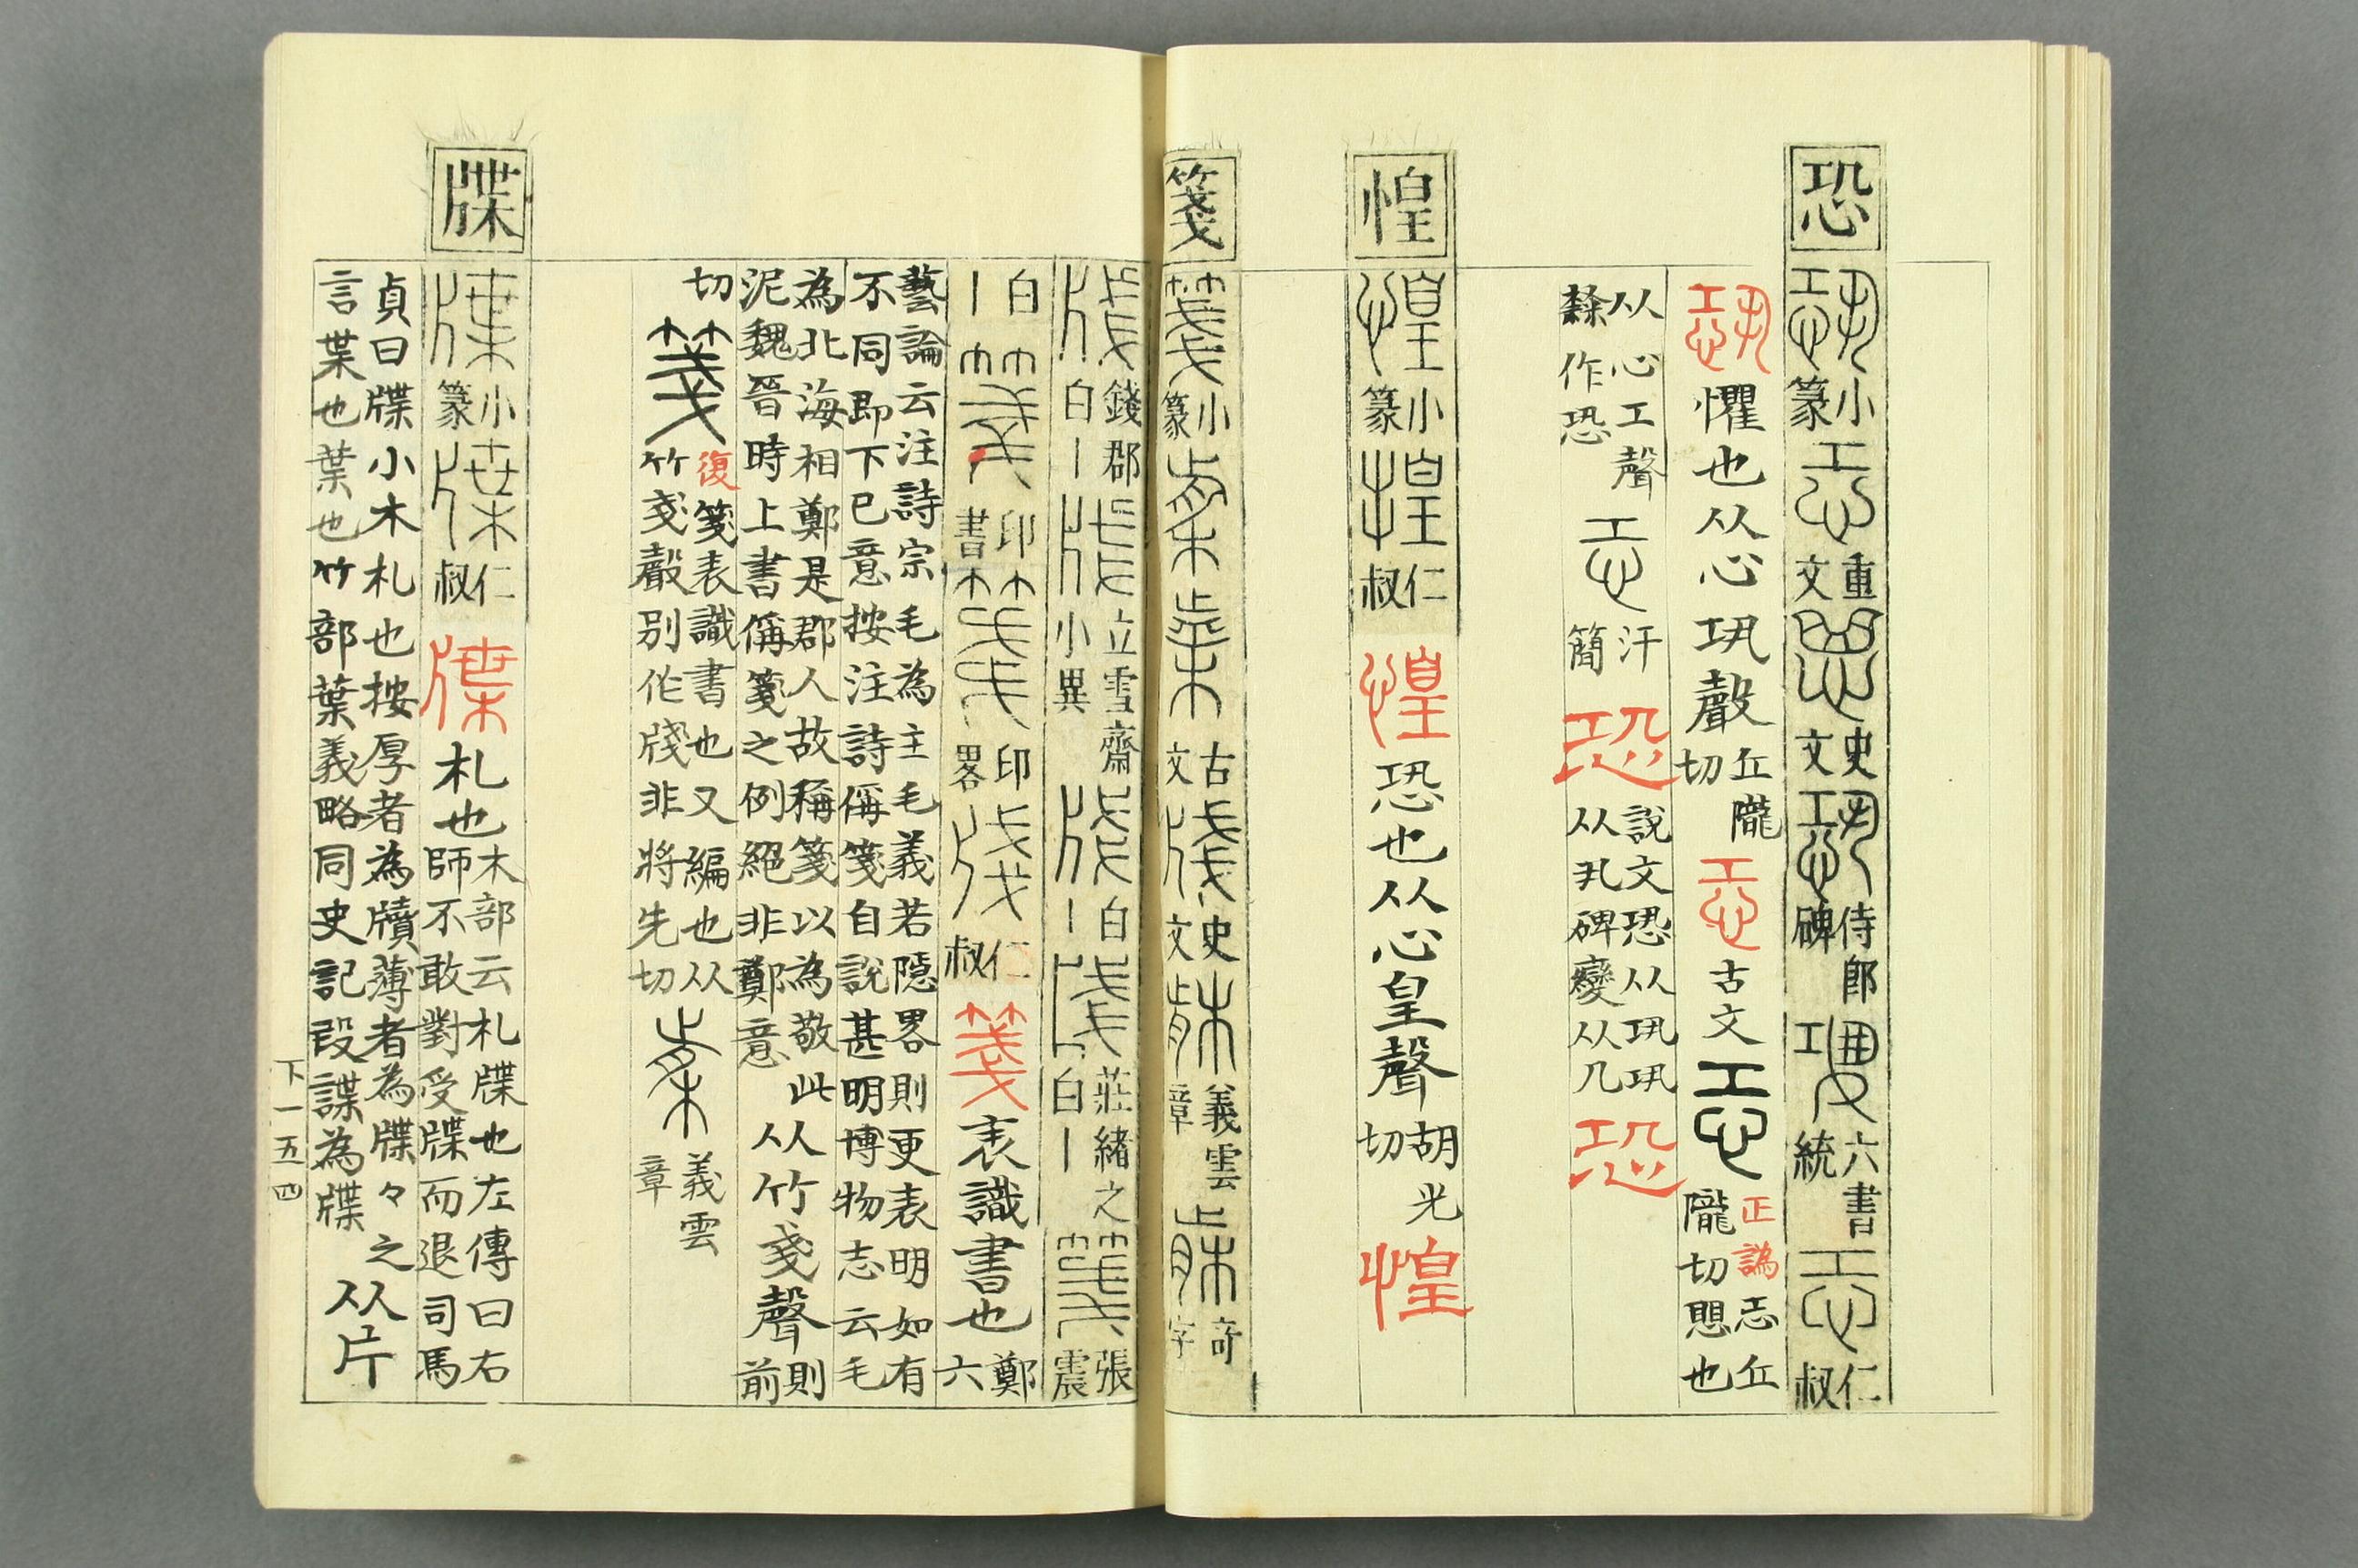 恐
小篆
重文
史文
侍郎碑
六書統
仁叔
懼也从心巩聲
丘隴切
古文
正譌恐丘
隴切思也
从心工聲
隸作恐
汗簡
恐
說文恐从巩巩
从丮碑變从凡
恐
惶
小篆
仁叔
惶
恐也从心皇聲
胡光切
惶
箋
小篆
古文
史文
義雲章
奇字
錢郡
白丨
立雪齋
小異
白丨
莊緒之
白丨
張震
白丨
印書
印畧
仁叔
箋
表識書也
鄭六
藝論云注詩宗毛為主毛義若隱畧則更表明如有
不同即下已意按注詩偁箋自說甚明博物志云毛
為北海相鄭是郡人故稱箋以為敬此
泥魏晉時上書偁箋之例絕非鄭意
从竹戔聲
則前
切
箋
復箋表識書也又編也从
竹戔聲別作牋非將先切
義雲章
牒
小篆
仁叔
牒
札也
木部云札牒也左傳曰右
師不敢對受牒而退司馬
貞曰牒小木札也按厚者為牘薄者為牒々之
言枼也葉也竹部葉義略同史記叚諜為牒
从片
下一五四